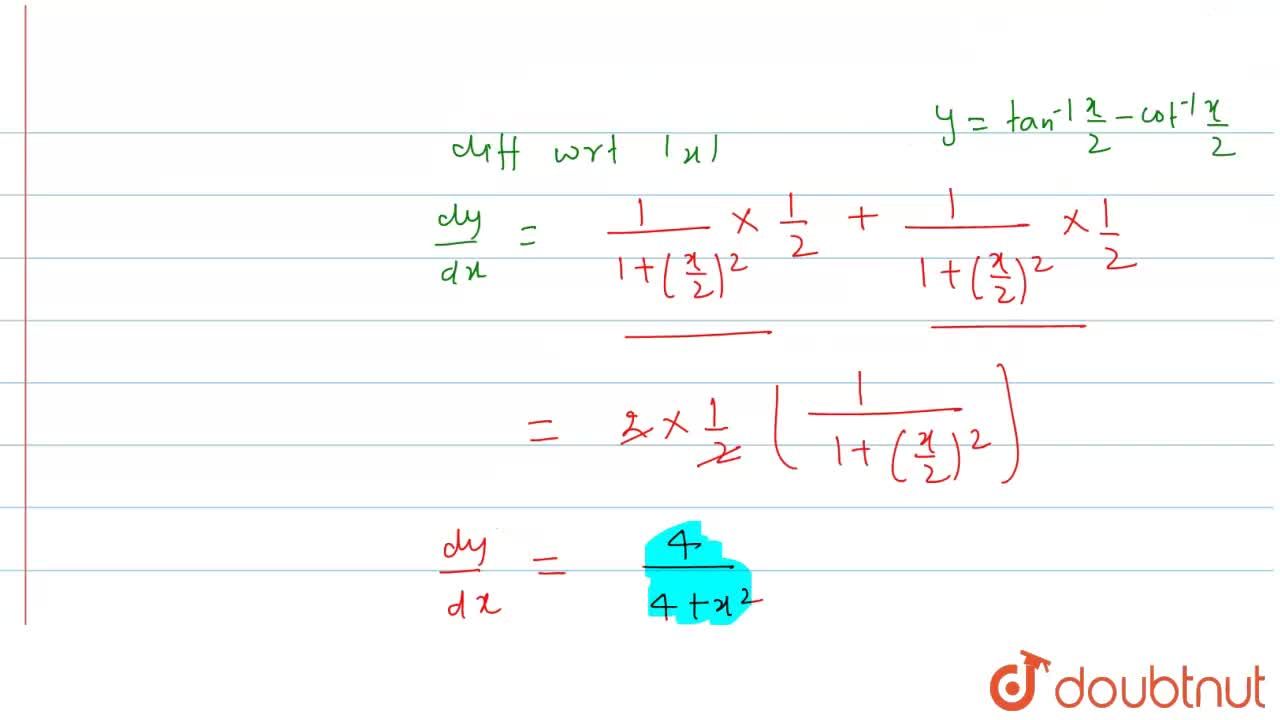 y = tan⁻¹ x/2 − cot⁻¹ x/2
diff wrt 'x'
dy/dx = 1/(1+(x/2)²) × 1/2 + 1/(1+(x/2)²) × 1/2
= 2 × 1/2 (1/(1+(x/2)²))
dy/dx = 4/(4+x²)
doubtnut